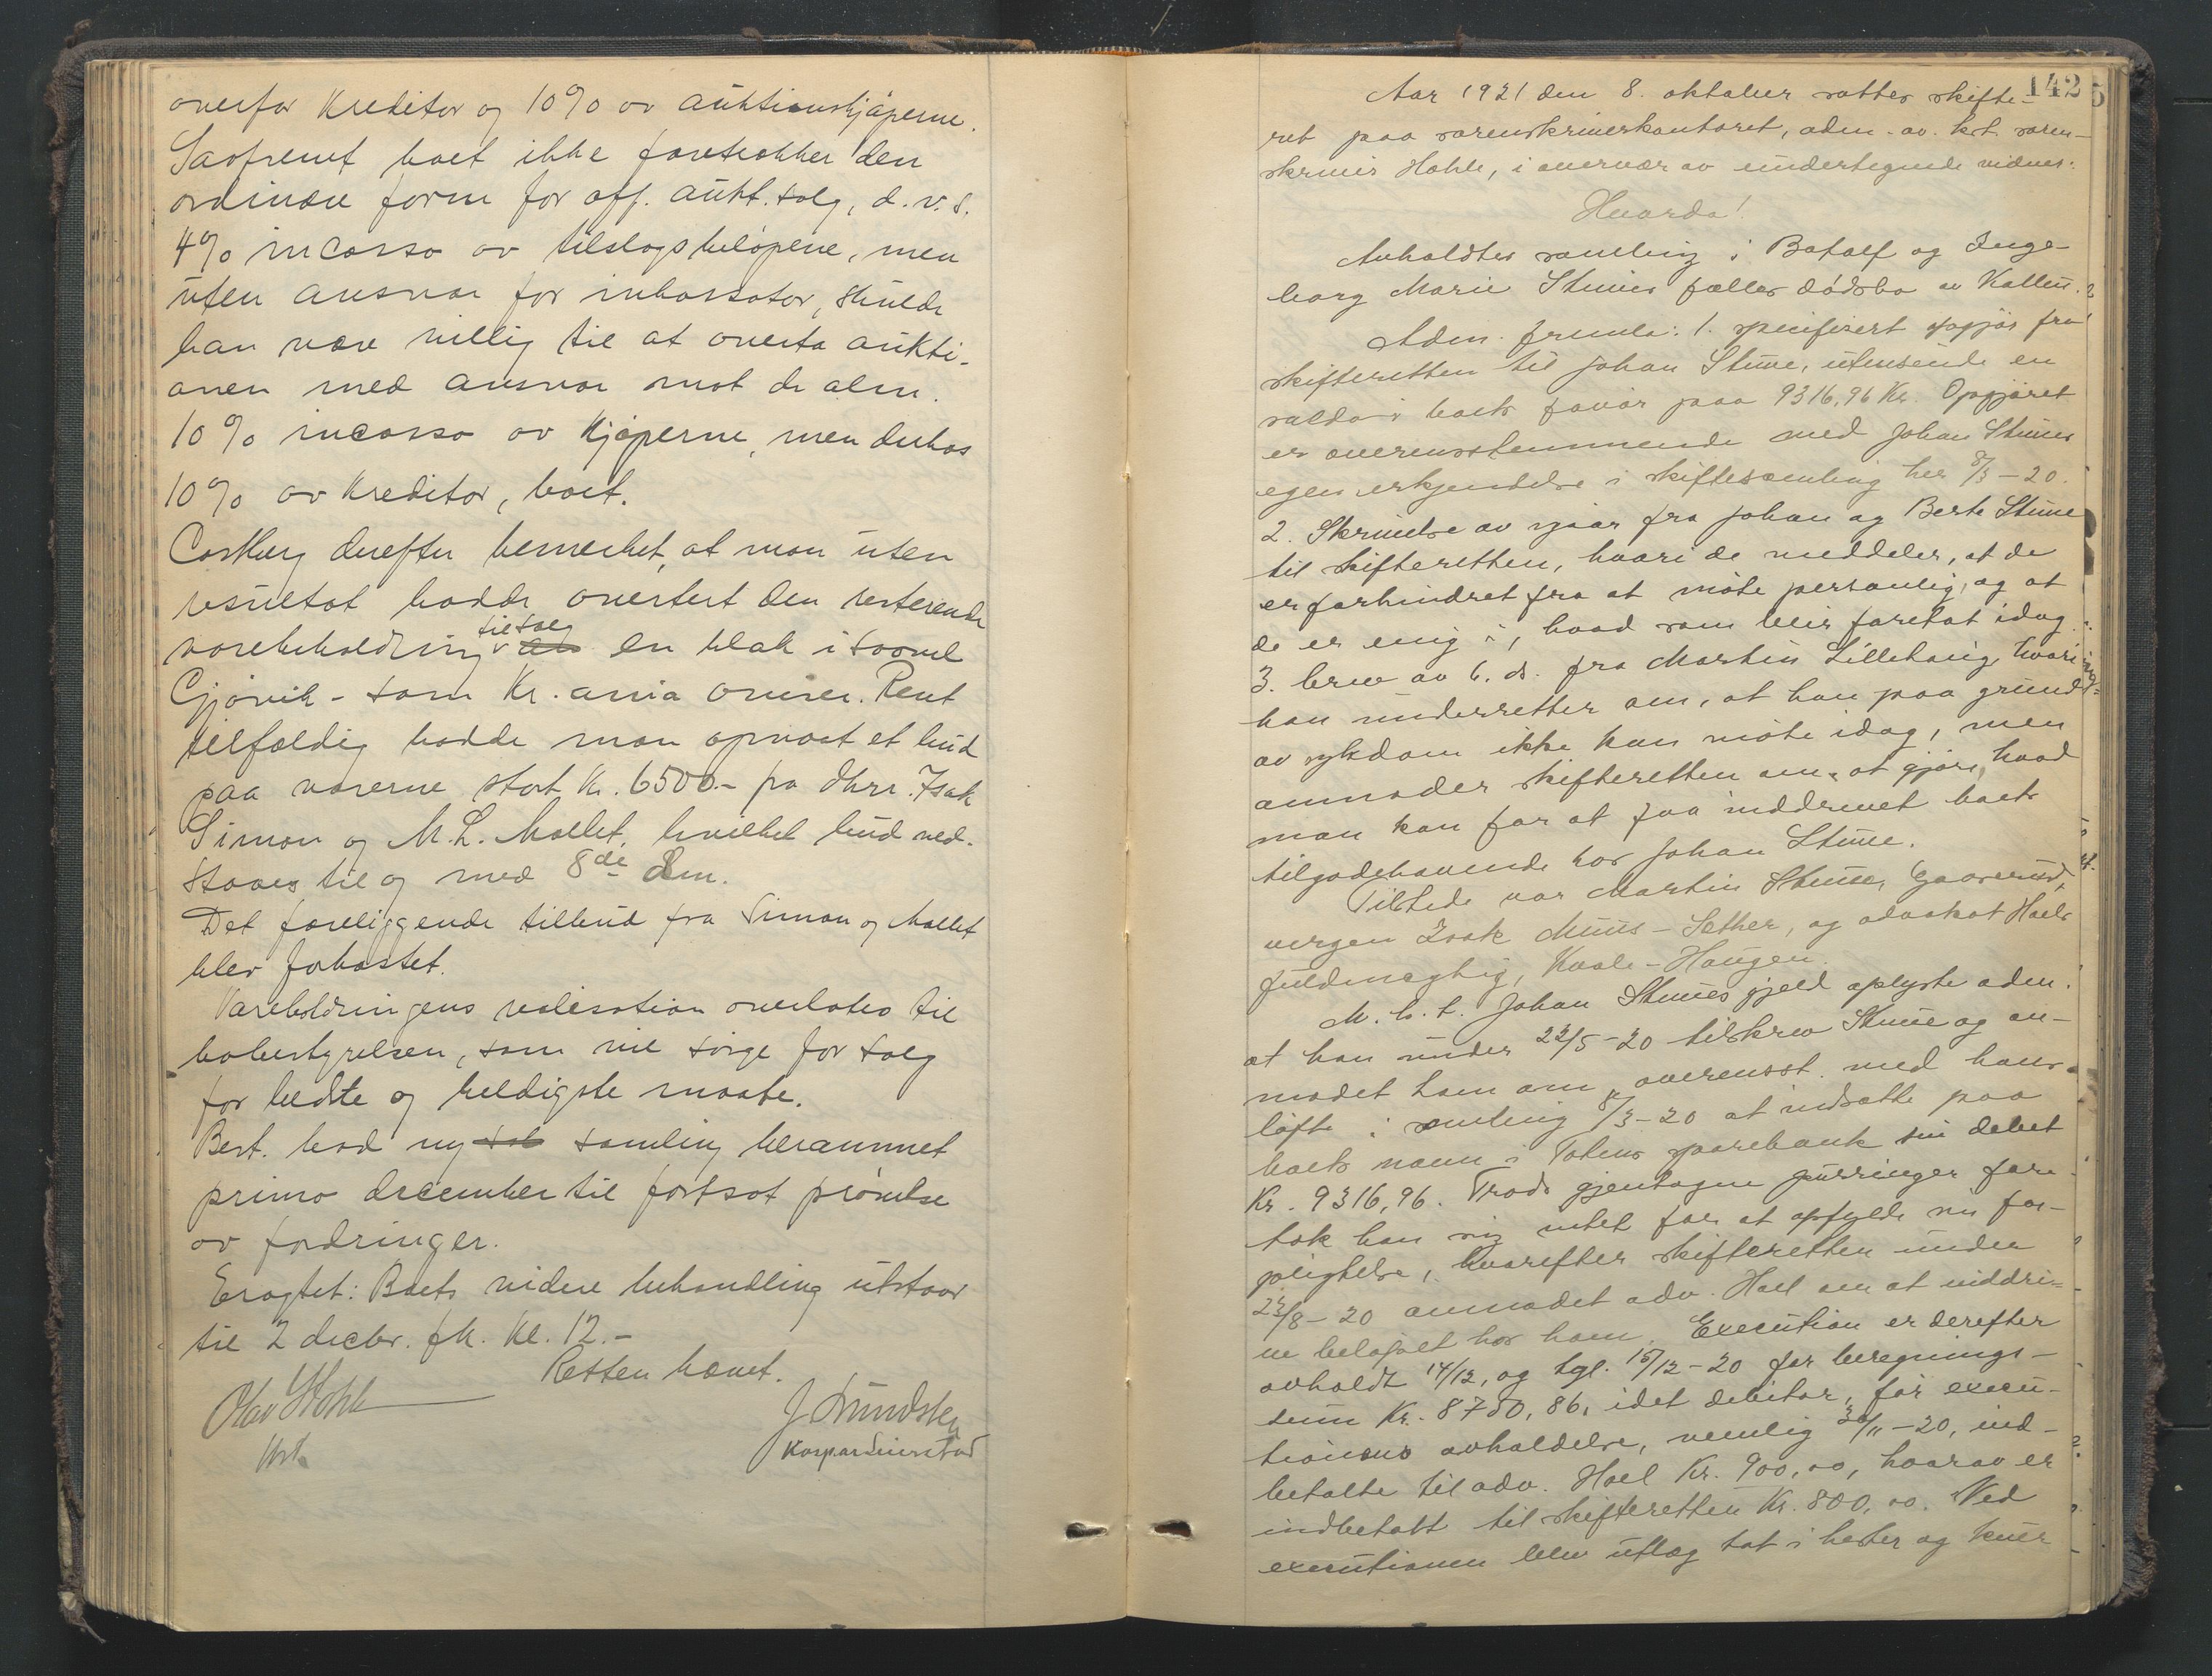 overfor Kreditor og 10% av auktionskjøperne.
Saafremt boet ikke foretrækker den
ordinære form for off. aukt. salg, d.v.s.
4% incasso av tilslagsbeløpene, men
uten ansvar for inkassator, skulde
han være villig til at overta aukti-
onen med ansvar mot de alm.
10% incasso av Kjøperne, men derhos
10% av Kreditor, boet.
Castberg derefter bemerket, at man uten
resultat hadde avertert den resterende
varebeholdning til salg en blok i saavel
Gjøvik - som Kr.ania aviser. Rent
tilfældig hadde man opnaaet et bud
paa varerne stort Kr. 6500.- fra d'hrr. Isak
Simon og M.L. Mallet, hvilket bud ved-
staaes til og med 8de dm.
Det foreliggende tilbud fra Simon og Mallet
blev forkastet.
Varebeholdningens realisation overlates til
bobestyrelsen, som vil sørge for salg
for bedste og heldigste maate.
Best. bad ny samling berammet
primo december til fortsat prøvelse
av fordringer.
Eragtet: Boets videre behandling utstaar
til 2 decbr. fk. Kl. 12.-
Retten hævet.
Olav Hohle
kst.
J. Sundsten
Kaspar
142
Aar 1921 den 8. oktober sattes skifte-
ret paa sorenskriverkontoret, adm. av kst. soren-
skriver Hohle, i overvær av undertegnede vidner:
Hvorda!
Avholdtes samling i Botolf og Inge-
borg Marie Stuves fælles dødsbo av Kolbu.
Adm. freml: 1. specifisert opgjør fra
skifteretten til Johan Stuve, utvisende en
saldo i boets favør paa 9316,96 Kr. Opgjøret
er overensstemmende med Johan Stuves
egen erkjendelse i skiftesamling her 8/3-20.
2. Skrivelse av igaar fra Johan og Berte Stuve
til skifteretten, hvori de meddeler, at de
er forhindret fra at møte personlig, og at
de er enig i, hvad som blir foretat idag.
3. brev av 6. ds. fra Martin Lillehaug, hvori
han underretter om, at han paa grund
av sykdom ikke kan møte idag, men
anmoder skifteretten om at gjøre, hvad
man kan for at faa inddrevet boets
tilgodehavende hos Johan Stuve.
Tilstede var Martin Stuve, Gaarerud,
vergen Isak Muus-Sether, og advokat Hoels
fuldmægtig, Kvale-Haugen.
M. h. t. Johan Stuves gjeld oplyste adm.
at han under 22/5-20 tilskrev Stuve og an-
modet ham om, overensst. med hans
løfte i samling 8/3-20 at indsætte paa
boets navn i Totens sparebank sin debet
Kr. 9316,96. Trods gjentagne purringer fore-
tok han sig intet for at opfylde sin for-
pligtelse, hvorefter skifteretten under
24/8-20 anmodet adv. Hoel om at inddri-
ve beløpet hos ham. Execution er derefter
avholdt 14/12, og tgl. 15/12-20 for beregnings-
sum Kr. 8750,86, idet debitor, før execu-
tionens avholdelse, nemlig 30/11-20, ind-
betalte til adv. Hoel Kr. 900,00, hvorav er
indbetalt til skifteretten Kr. 800,00. Ved
executionen blev utlæg tat i hester og kuer